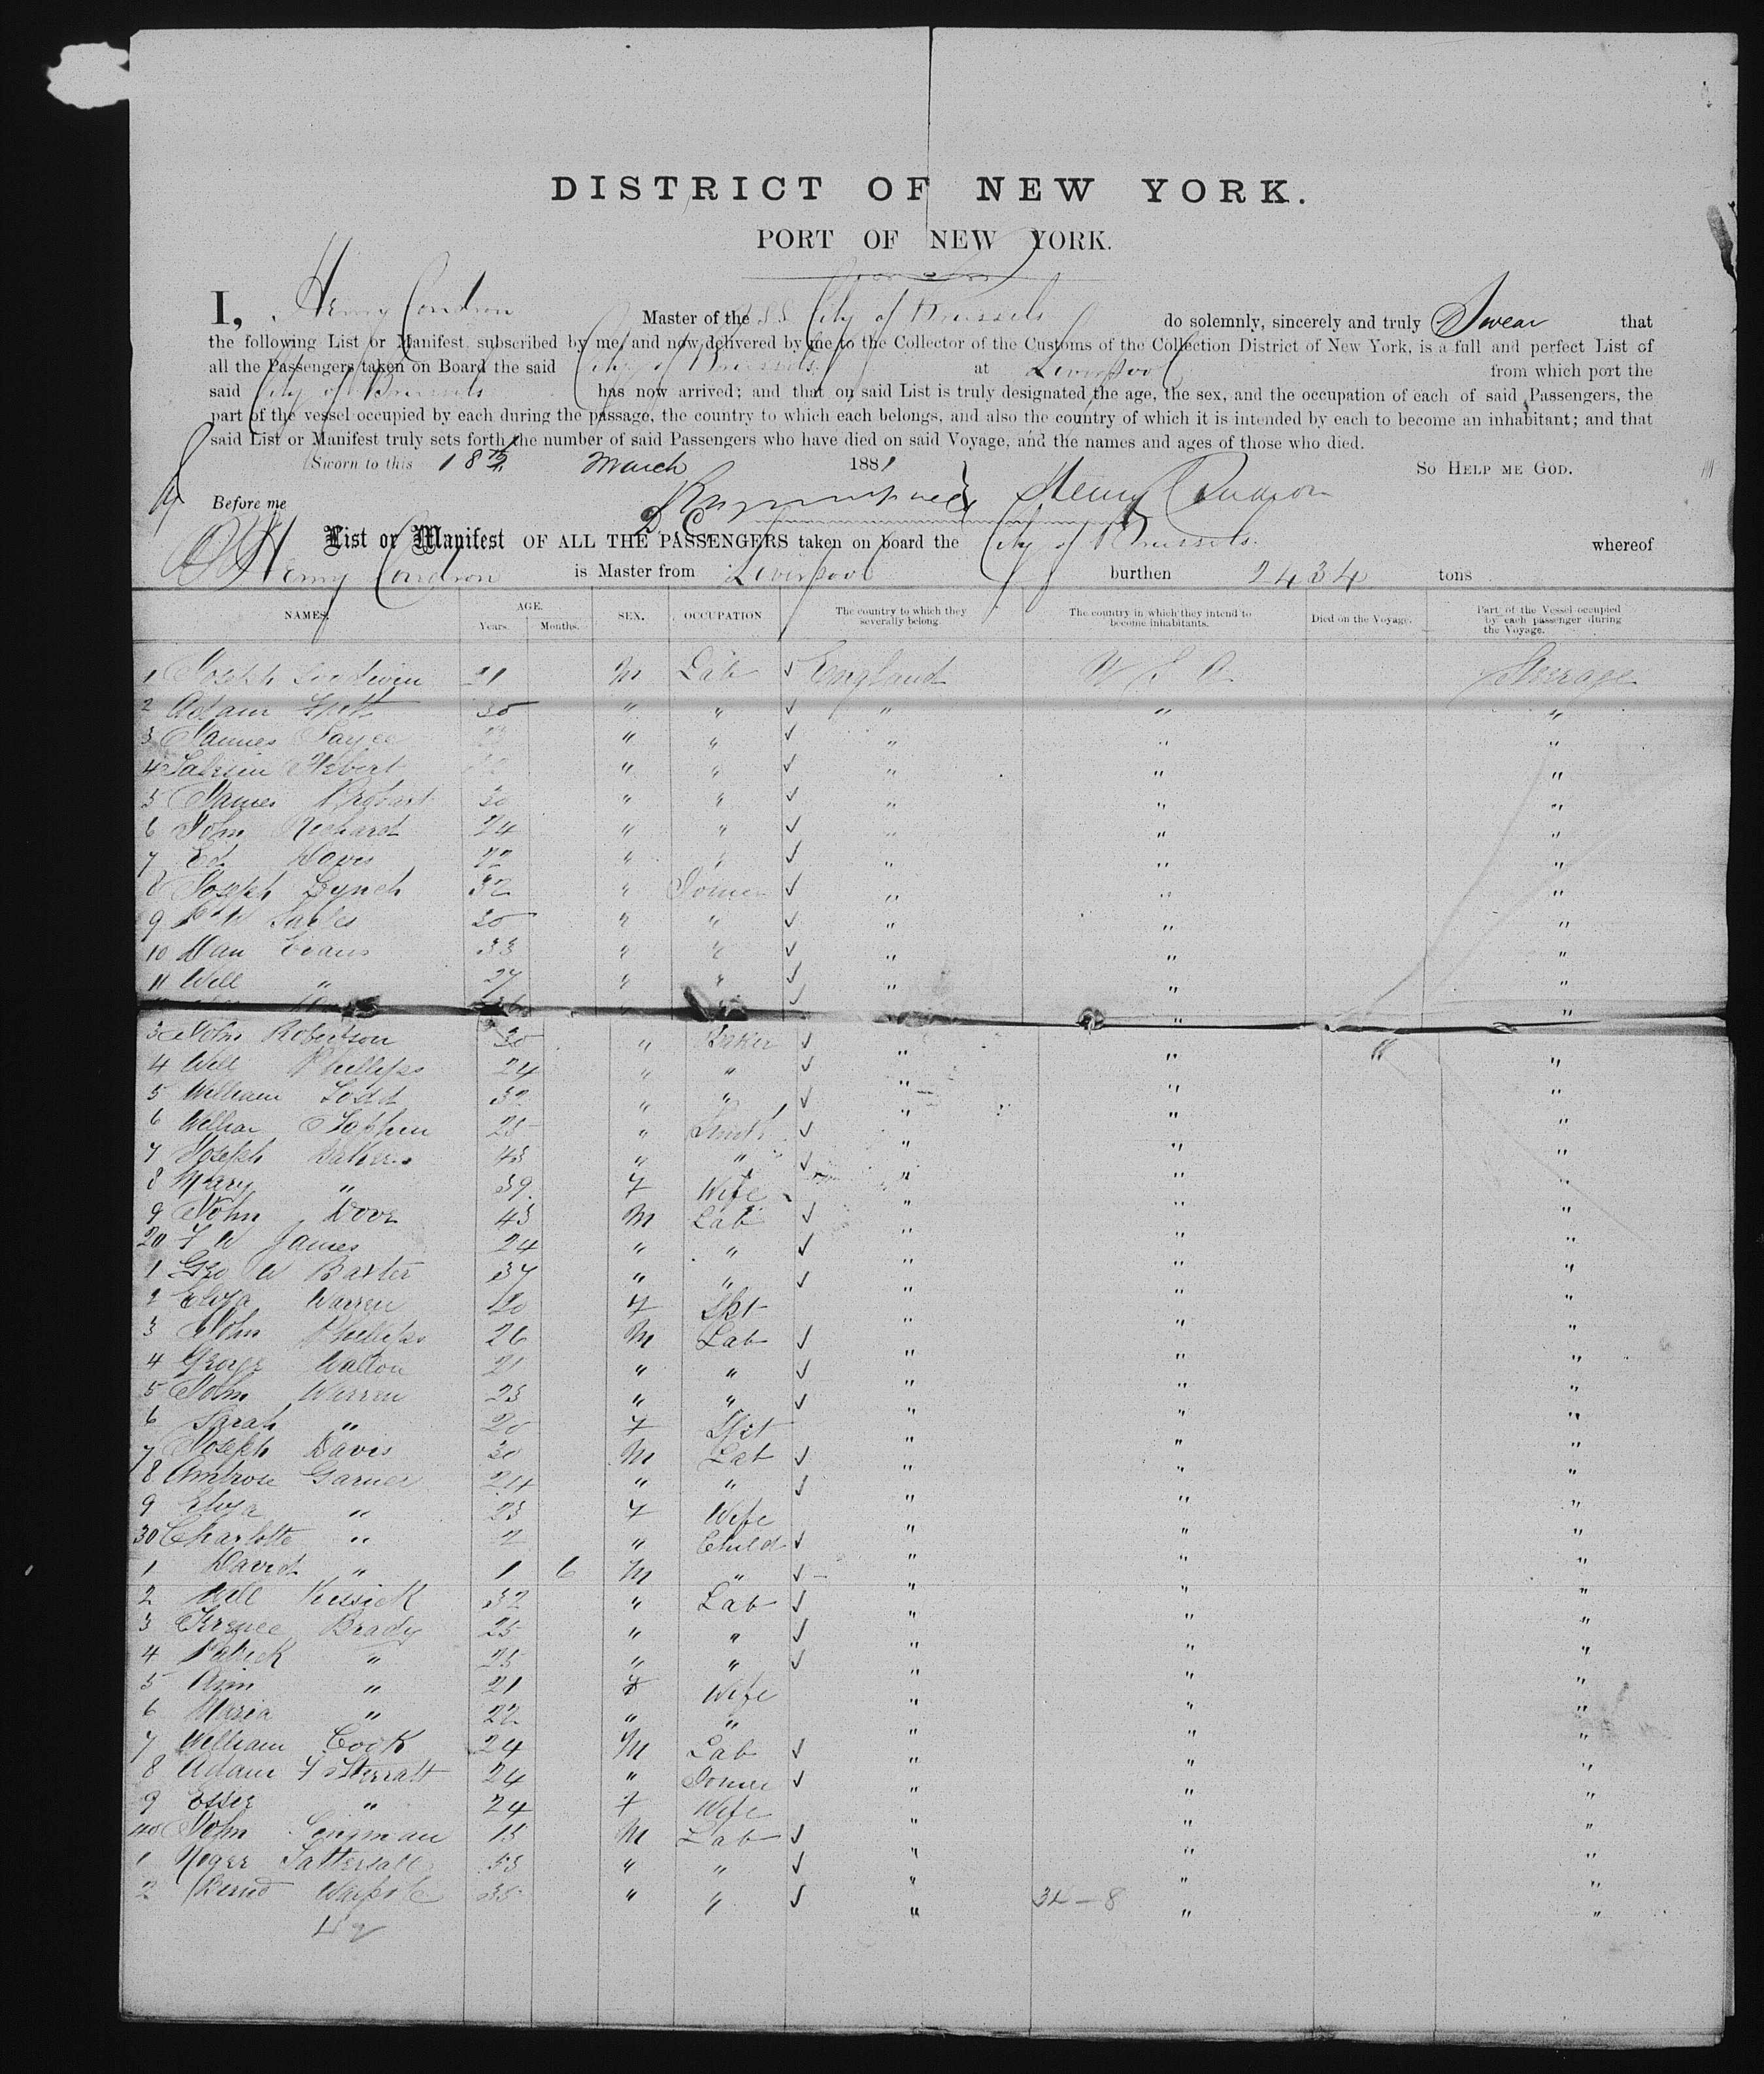 DISTRICT OF NEW YORK.
PORT OF NEW YORK.
I, Henry Condron Master of the SS City of Brussels do solemnly, sincerely and truly Swear that
the following List or Manifest, subscribed by me, and now delivered by me to the Collector of the Customs of the Collection District of New York, is a full and perfect List of
all the Passengers taken on Board the said City of Brussels at Liverpool from which port the
said City of Brussels has now arrived; and that on said List is truly designated the age, the sex, and the occupation of each of said Passengers, the
part of the vessel occupied by each during the passage, the country to which each belongs, and also the country of which it is intended by each to become an inhabitant; and that
said List or Manifest truly sets forth the number of said Passengers who have died on said Voyage, and the names and ages of those who died.
Sworn to this 18th March 1881 SO HELP ME GOD.
Before me Henry Condron
D. C.
List or Manifest OF ALL THE PASSENGERS taken on board the City of Brussels whereof
Henry Condron is Master from Liverpool burthen 2434 tons
NAMES. AGE. Years. Months. SEX. OCCUPATION The country to which they severally belong. The country in which they intend to become inhabitants. Died on the Voyage. Part of the Vessel occupied by each passenger during the Voyage.
1 Joseph Goodwin 21 M Lab ✓ England U S A Steerage
2 Adam 30 " " ✓ " " "
3 James " " ✓ " " "
4 " " ✓ " " "
5 James 30 " " ✓ " " "
6 John Richard 24 " " ✓ " " "
7 Ed Davis 22 " " ✓ " " "
8 Joseph Lynch 32 " Joiner ✓ " " "
9 20 " " ✓ " " "
10 Dan Evans 33 " " ✓ " " "
11 Will " 27 " " ✓ " " "
3 John Robertson 30 " Baker ✓ " " "
4 Will Phillips 24 " " ✓ " " "
5 William Todd 32 " " ✓ " " "
6 William 25 " Smith ✓ " " "
7 Joseph 43 " " ✓ " " "
8 Mary " 39 F Wife " " "
9 John Dove 43 M Lab ✓ " " "
20 F W James 24 " " ✓ " " "
1 Geo W Baxter 37 " " ✓ " " "
2 Eliza Warren 20 F Spt " " "
3 John Phillips 26 M Lab ✓ " " "
4 George Walton 21 " " ✓ " " "
5 John Warren 23 " " ✓ " " "
6 Sarah " 20 F Spt " " "
7 Joseph Davis 30 M Lab ✓ " " "
8 Ambrose Garner 24 " " ✓ " " "
9 Eliza " 23 F Wife " " "
30 Charlotte " 2 " Child ✓ " " "
1 David " 1 6 M " ✓ " " "
2 Will Kessick 32 " Lab ✓ " " "
3 Terence Brady 25 " " ✓ " " "
4 Patrick " 25 " " ✓ " " "
5 Ann " 21 F Wife " " "
6 Maria " 22 " " " " "
7 William Cook 24 M Lab ✓ " " "
8 Adam F Sterratt 24 " Joiner ✓ " " "
9 Esser " 24 F Wife " " "
40 John 15 M Lab ✓ " " "
1 Roger Tattersall 53 " " ✓ " " "
2 35 " " ✓ " 34-8 " "